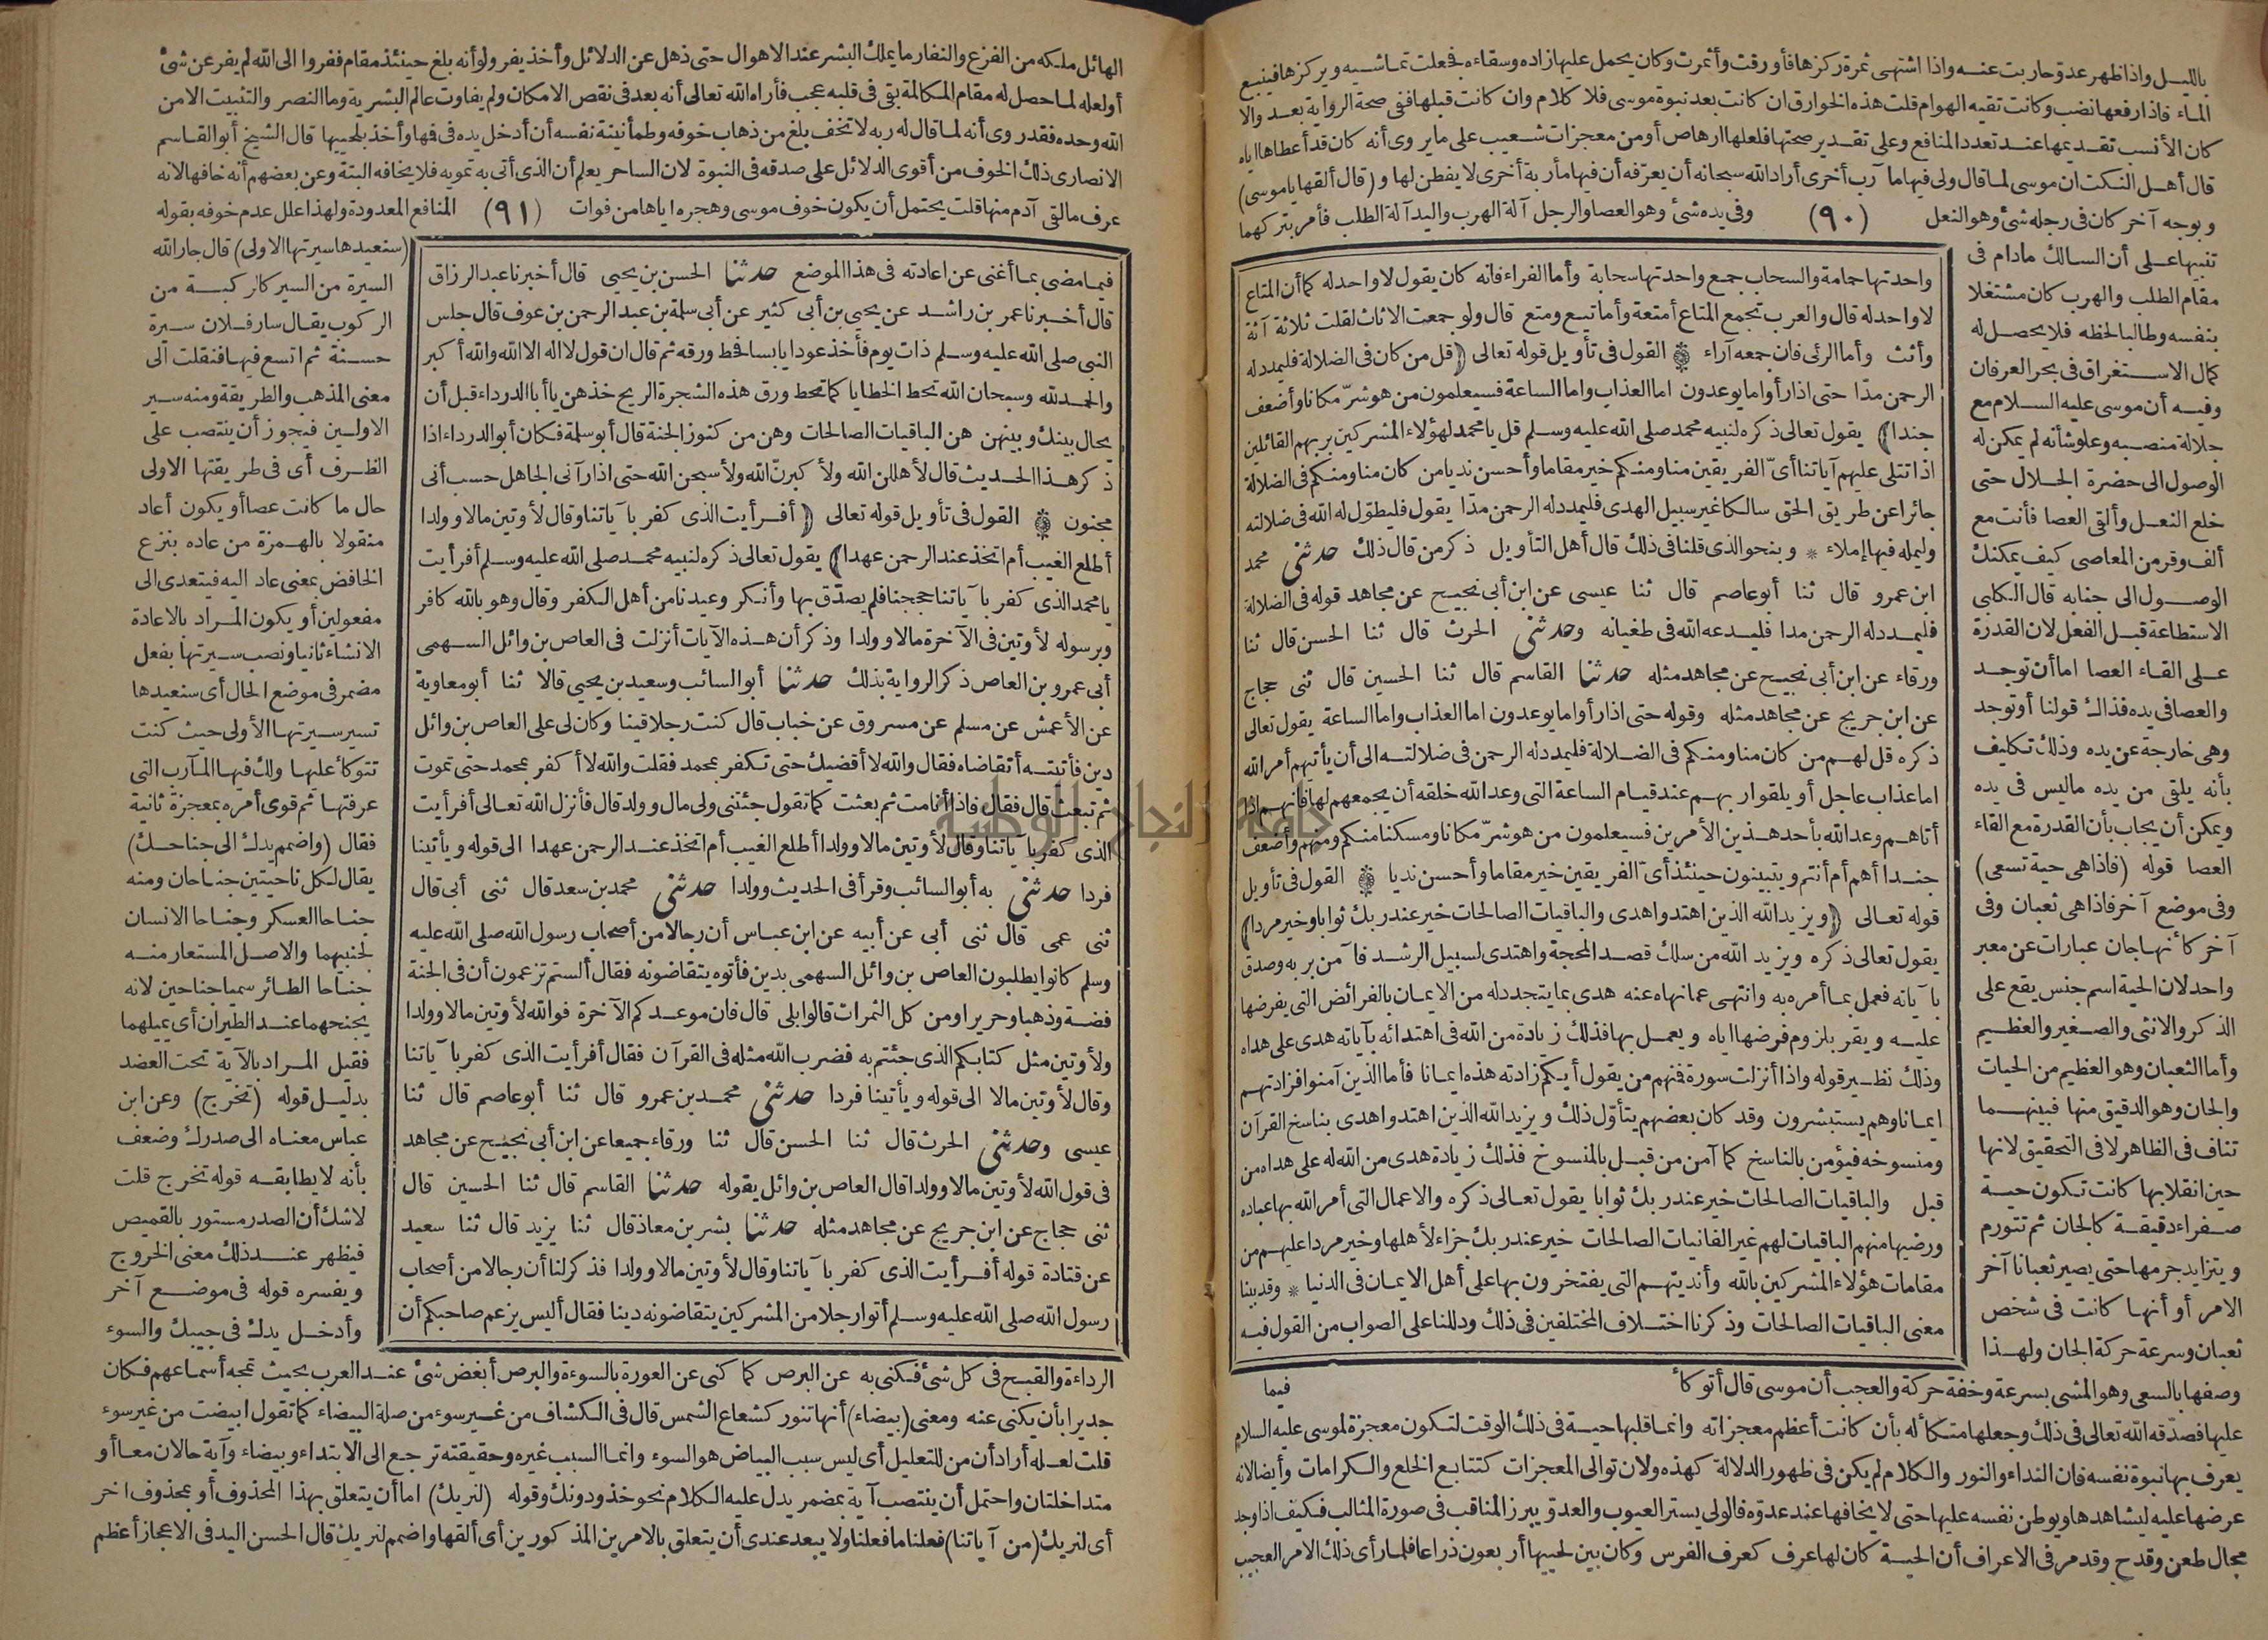 بالليل واذا ظهر عدو حاربت عنه واذا اشتهى ثمرة ركزها فأورقت وأثمرت وكان يحمل عليها زاده وسقاءه فجعلت تماشيه ويركزها فينبع
الماء فاذا رفعها نضب وكانت تقيه الهوام قلت هذه الخوارق ان كانت بعد نبوة موسى فلا كلام وان كانت قبلها ففى صحة الرواية بعد والا
كان الأنسب تقديمها عند تعدد المنافع وعلى تقدير صحتها فلعلها ارهاص أو من معجزات شعيب على ما يروى أنه كان قد أعطاها اياه
قال أهل النكت ان موسى لما قال ولى فيها مآرب أخرى أراد الله سبحانه أن يعرّفه أن فيها مأربة أخرى لا يفطن لها و (قال ألقها ياموسى)
وبوجه آخر كان فى رجله شئ وهو النعل (٩٠) وفى يده شئ وهو العصا والرجل آلة الهرب واليد آلة الطلب فأمر بتركهما
تنبيها على أن السالك مادام فى
مقام الطلب والهرب كان مشتغلا
بنفسه وطالبا لحظه فلا يحصل له
كمال الاستغراق فى بحر العرفان
وفيه أن موسى عليه السلام مع
جلالة منصبه وعلو شأنه لم يمكن له
الوصول الى حضرة الجلال حتى
خلع النعل وألقى العصا فأنت مع
ألف وقر من المعاصى كيف يمكنك
الوصول الى جنابه قال الكلبى
الاستطاعة قبل الفعل لان القدرة
على القاء العصا اما أن توجد
والعصا فى يده فذاك قولنا أو توجد
وهى خارجة عن يده وذلك تكليف
بأنه يلقى من يده ما ليس فى يده
ويمكن أن يجاب بأن القدرة مع القاء
العصا قوله (فاذا هى حية تسعى)
وفى موضع آخر فاذا هى ثعبان وفى
آخر كأنها جان عبارات عن معبر
واحد لان الحية اسم جنس يقع على
الذكر والانثى والصغير والعظيم
وأما الثعبان وهو العظيم من الحيات
والجان وهو الدقيق منها فبينهما
تناف فى الظاهر لا فى التحقيق لانها
حين انقلابها كانت تكون حية
صفراء دقيقة كالجان ثم تتورم
ويتزايد جرمها حتى يصير ثعبانا آخر
الامر أو أنها كانت فى شخص
ثعبان وسرعة حركة الجان ولهذا
واحدتها حمامة والسحاب جمع واحدتها سحابة وأما الفراء فانه كان يقول لا واحد له كما أن المتاع
لا واحد له قال والعرب تجمع المتاع أمتعة وأماتيع ومتع قال ولو جمعت الاثاث لقلت ثلاثة آثة
وأثث وأما الرئى فان جمعه آراء ۞ القول فى تأويل قوله تعالى ﴿قل من كان فى الضلالة فليمدد له
الرحمن مدّا حتى اذا رأوا ما يوعدون اما العذاب واما الساعة فسيعلمون من هو شرّ مكانا وأضعف
جندا﴾ يقول تعالى ذكره لنبيه محمد صلى الله عليه وسلم قل يا محمد لهؤلاء المشركين بربهم القائلين
اذا تتلى عليهم آياتنا أىّ الفريقين منا ومنكم خير مقاما وأحسن نديا من كان منا ومنكم فى الضلالة
جائرا عن طريق الحق سالكا غير سبيل الهدى فليمدد له الرحمن مدّا يقول فليطوّل له الله فى ضلالته
وليمله فيها إملاء * وبنحو الذى قلنا فى ذلك قال أهل التأويل ذكر من قال ذلك حدثنى محمد
ابن عمرو قال ثنا أبو عاصم قال ثنا عيسى عن ابن أبى نجيح عن مجاهد قوله فى الضلالة
فليمدد له الرحمن مدا فليدعه الله فى طغيانه وحدثنى الحرث قال ثنا الحسن قال ثنا
ورقاء عن ابن أبى نجيح عن مجاهد مثله حدثنا القاسم قال ثنا الحسين قال ثنى حجاج
عن ابن جريج عن مجاهد مثله وقوله حتى اذا رأوا ما يوعدون اما العذاب واما الساعة يقول تعالى
ذكره قل لهم من كان منا ومنكم فى الضلالة فليمدد له الرحمن فى ضلالته الى أن يأتيهم أمر الله
اما عذاب عاجل أو يلقوا ربهم عند قيام الساعة التى وعد الله خلقه أن يجمعهم لها فانهم اذا
أتاهم وعد الله بأحد هذين الأمرين فسيعلمون من هو شرّ مكانا ومسكنا منكم ومنهم وأضعف
جندا أهم أم أنتم ويتبينون حينئذ أىّ الفريقين خير مقاما وأحسن نديا ۞ القول فى تأويل
قوله تعالى ﴿ويزيد الله الذين اهتدوا هدى والباقيات الصالحات خير عند ربك ثوابا وخير مردا﴾
يقول تعالى ذكره ويزيد الله من سلك قصد المحجة واهتدى لسبيل الرشد فآمن بربه وصدق
بآياته فعمل بما أمره به وانتهى عما نهاه عنه هدى بما يتجدد له من الايمان بالفرائض التى يفرضها
عليه ويقر بلزوم فرضها اياه ويعمل بها فذلك زيادة من الله فى اهتدائه بآياته هدى على هداه
وذلك نظير قوله واذا أنزلت سورة فمنهم من يقول أيكم زادته هذه ايمانا فأما الذين آمنوا فزادتهم
ايمانا وهم يستبشرون وقد كان بعضهم يتأوّل ذلك ويزيد الله الذين اهتدوا هدى بناسخ القرآن
ومنسوخه فيؤمن بالناسخ كما آمن من قبل بالمنسوخ فذلك زيادة هدى من الله له على هداه من
قبل والباقيات الصالحات خير عند ربك ثوابا يقول تعالى ذكره والاعمال التى أمر الله بها عباده
ورضيها منهم الباقيات لهم غير الفانيات الصالحات خير عند ربك جزاء لأهلها وخير مردا عليهم من
مقامات هؤلاء المشركين بالله وأنديتهم التى يفتخرون بها على أهل الايمان فى الدنيا * وقد بينا
معنى الباقيات الصالحات وذكرنا اختلاف المختلفين فى ذلك ودللنا على الصواب من القول فيه
فيما
وصفها بالسعى وهو المشى بسرعة وخفة حركة والعجب أن موسى قال أتوكأ
عليها فصدّقه الله تعالى فى ذلك وجعلها متكأ له بأن كانت أعظم معجزاته وانما قلبها حية فى ذلك الوقت لتكون معجزة لموسى عليه السلام
يعرف بها نبوة نفسه فان النداء والنور والكلام لم يكن فى ظهور الدلالة كهذه ولان توالى المعجزات كتتابع الخلع والكرامات وأيضا لانه
عرضها عليه ليشاهدها ويوطن نفسه عليها حتى لا يخافها عند عدوّه فالولى يستر العيوب والعدوّ يبرز المناقب فى صورة المثالب فكيف اذا وجد
مجال طعن وقدح وقد مر فى الاعراف أن الحية كان لها عرف كعرف الفرس وكان بين لحييها أربعون ذراعا فلما رأى ذلك الامر العجيب
الهائل ملكه من الفزع والنفار ما يملك البشر عند الاهوال حتى ذهل عن الدلائل وأخذ يفر ولو أنه بلغ حينئذ مقام ففروا الى الله لم يفر عن شئ
أو لعله لما حصل له مقام المكالمة بقى فى قلبه عجب فأراه الله تعالى أنه بعد فى نقص الامكان ولم يفاوت عالم البشرية وما النصر والتثبيت الا من
الله وحده فقد روى أنه لما قال له ربه لا تخف بلغ من ذهاب خوفه وطمأنينة نفسه أن أدخل يده فى فمها وأخذ بلحييها قال الشيخ أبو القاسم
الانصارى ذلك الخوف من أقوى الدلائل على صدقه فى النبوة لان الساحر يعلم أن الذى أتى به تمويه فلا يخافه البتة وعن بعضهم أنه خافها لانه
عرف ما لقى آدم منها قلت يحتمل أن يكون خوف موسى وهجره اياها من فوات (٩١) المنافع المعدودة ولهذا علل عدم خوفه بقوله
(سنعيدها سيرتها الاولى) قال جار الله
السيرة من السير كالركبة من
الركوب يقال سار فلان سيرة
حسنة ثم اتسع فيها فنقلت الى
معنى المذهب والطريقة ومنه سير
الاولين فيجوز أن ينتصب على
الظرف أى فى طريقتها الاولى
حال ما كانت عصا أو يكون أعاد
منقولا بالهمزة من عاده بنزع
الخافض بمعنى عاد اليه فيتعدى الى
مفعولين أو يكون المراد بالاعادة
الانشاء ثانيا ونصب سيرتها بفعل
مضمر فى موضع الحال أى سنعيدها
تسير سيرتها الأولى حيث كنت
تتوكأ عليها ولك فيها المآرب التى
عرفتها ثم قوى أمره بمعجزة ثانية
فقال (واضمم يدك الى جناحك)
يقال لكل ناحيتين جناحان ومنه
جناحا العسكر وجناحا الانسان
لجنبيهما والاصل المستعار منه
جناحا الطائر سميا جناحين لانه
يجنحهما عند الطيران أى يميلهما
فقيل المراد بالآية تحت العضد
بدليل قوله (تخرج) وعن ابن
عباس معناه الى صدرك وضعف
بأنه لا يطابقه قوله تخرج قلت
لا شك أن الصدر مستور بالقميص
فيظهر عند ذلك معنى الخروج
ويفسره قوله فى موضع آخر
وأدخل يدك فى جيبك والسوء
فيما مضى بما أغنى عن اعادته فى هذا الموضع حدثنا الحسن بن يحيى قال أخبرنا عبد الرزاق
قال أخبرنا عمر بن راشد عن يحيى بن أبى كثير عن أبى سلمة بن عبد الرحمن بن عوف قال جلس
النبى صلى الله عليه وسلم ذات يوم فأخذ عودا يابسا فحط ورقه ثم قال ان قول لا اله الا الله والله أكبر
والحمد لله وسبحان الله تحط الخطايا كما تحط ورق هذه الشجرة الريح خذهن يا أبا الدرداء قبل أن
يحال بينك وبينهن هن الباقيات الصالحات وهن من كنوز الجنة قال أبو سلمة فكان أبو الدرداء اذا
ذكر هذا الحديث قال لأهللن الله ولأكبرنّ الله ولأسبحن الله حتى اذا رآنى الجاهل حسب أنى
مجنون ۞ القول فى تأويل قوله تعالى ﴿أفرأيت الذى كفر بآياتنا وقال لأوتين مالا وولدا
أطلع الغيب أم اتخذ عند الرحمن عهدا﴾ يقول تعالى ذكره لنبيه محمد صلى الله عليه وسلم أفرأيت
يا محمد الذى كفر بآياتنا حججنا فلم يصدّق بها وأنكر وعيدنا من أهل الكفر وقال وهو بالله كافر
وبرسوله لأوتين فى الآخرة مالا وولدا وذكر أن هذه الآيات أنزلت فى العاص بن وائل السهمى
أبى عمرو بن العاص ذكر الرواية بذلك حدثنا أبو السائب وسعيد بن يحيى قالا ثنا أبو معاوية
عن الأعمش عن مسلم عن مسروق عن خباب قال كنت رجلا قينا وكان لى على العاص بن وائل
دين فأتيته أتقاضاه فقال والله لا أقضيك حتى تكفر بمحمد فقلت والله لا أكفر بمحمد حتى تموت
ثم تبعث قال فقال فاذا أنا مت ثم بعثت كما تقول جئتنى ولى مال وولد قال فأنزل الله تعالى أفرأيت
الذى كفر بآياتنا وقال لأوتين مالا وولدا أطلع الغيب أم اتخذ عند الرحمن عهدا الى قوله ويأتينا
فردا حدثنى به أبو السائب وقرأ فى الحديث وولدا حدثنى محمد بن سعد قال ثنى أبى قال
ثنى عمى قال ثنى أبى عن أبيه عن ابن عباس أن رجالا من أصحاب رسول الله صلى الله عليه
وسلم كانوا يطلبون العاص بن وائل السهمى بدين فأتوه يتقاضونه فقال ألستم تزعمون أن فى الجنة
فضة وذهبا وحريرا ومن كل الثمرات قالوا بلى قال فان موعدكم الآخرة فوالله لأوتين مالا وولدا
ولأوتين مثل كتابكم الذى جئتم به فضرب الله مثله فى القرآن فقال أفرأيت الذى كفر بآياتنا
وقال لأوتين مالا الى قوله ويأتينا فردا حدثنى محمد بن عمرو قال ثنا أبو عاصم قال ثنا
عيسى وحدثنى الحرث قال ثنا الحسن قال ثنا ورقاء جميعا عن ابن أبى نجيح عن مجاهد
فى قول الله لأوتين مالا وولدا قال العاص بن وائل يقوله حدثنا القاسم قال ثنا الحسين قال
ثنى حجاج عن ابن جريج عن مجاهد مثله حدثنا بشر بن معاذ قال ثنا يزيد قال ثنا سعيد
عن قتادة قوله أفرأيت الذى كفر بآياتنا وقال لأوتين مالا وولدا فذكر لنا أن رجالا من أصحاب
رسول الله صلى الله عليه وسلم أتوا رجلا من المشركين يتقاضونه دينا فقال أليس يزعم صاحبكم أن
الرداءة والقبح فى كل شئ فكنى به عن البرص كما كنى عن العورة بالسوءة والبرص أبغض شئ عند العرب بحيث تمجه أسماعهم فكان
جديرا بأن يكنى عنه ومعنى (بيضاء) أنها تنور كشعاع الشمس قال فى الكشاف من غير سوء من صلة البيضاء كما تقول ابيضت من غير سوء
قلت لعله أراد أن من للتعليل أى ليس سبب البياض هو السوء وانما السبب غيره وحقيقته ترجع الى الابتداء وبيضاء وآية حالان معا أو
متداخلتان واحتمل أن ينتصب آية بمضمر يدل عليه الكلام نحو خذ ودونك وقوله (لنريك) اما أن يتعلق بهذا المحذوف أو بمحذوف اخر
أى لنريك (من آياتنا) فعلنا ما فعلنا ولا يبعد عندى أن يتعلق بالامرين المذكورين أى ألقها واضمم لنريك قال الحسن اليد فى الاعجاز أعظم
جامعة النجاح الوطنية